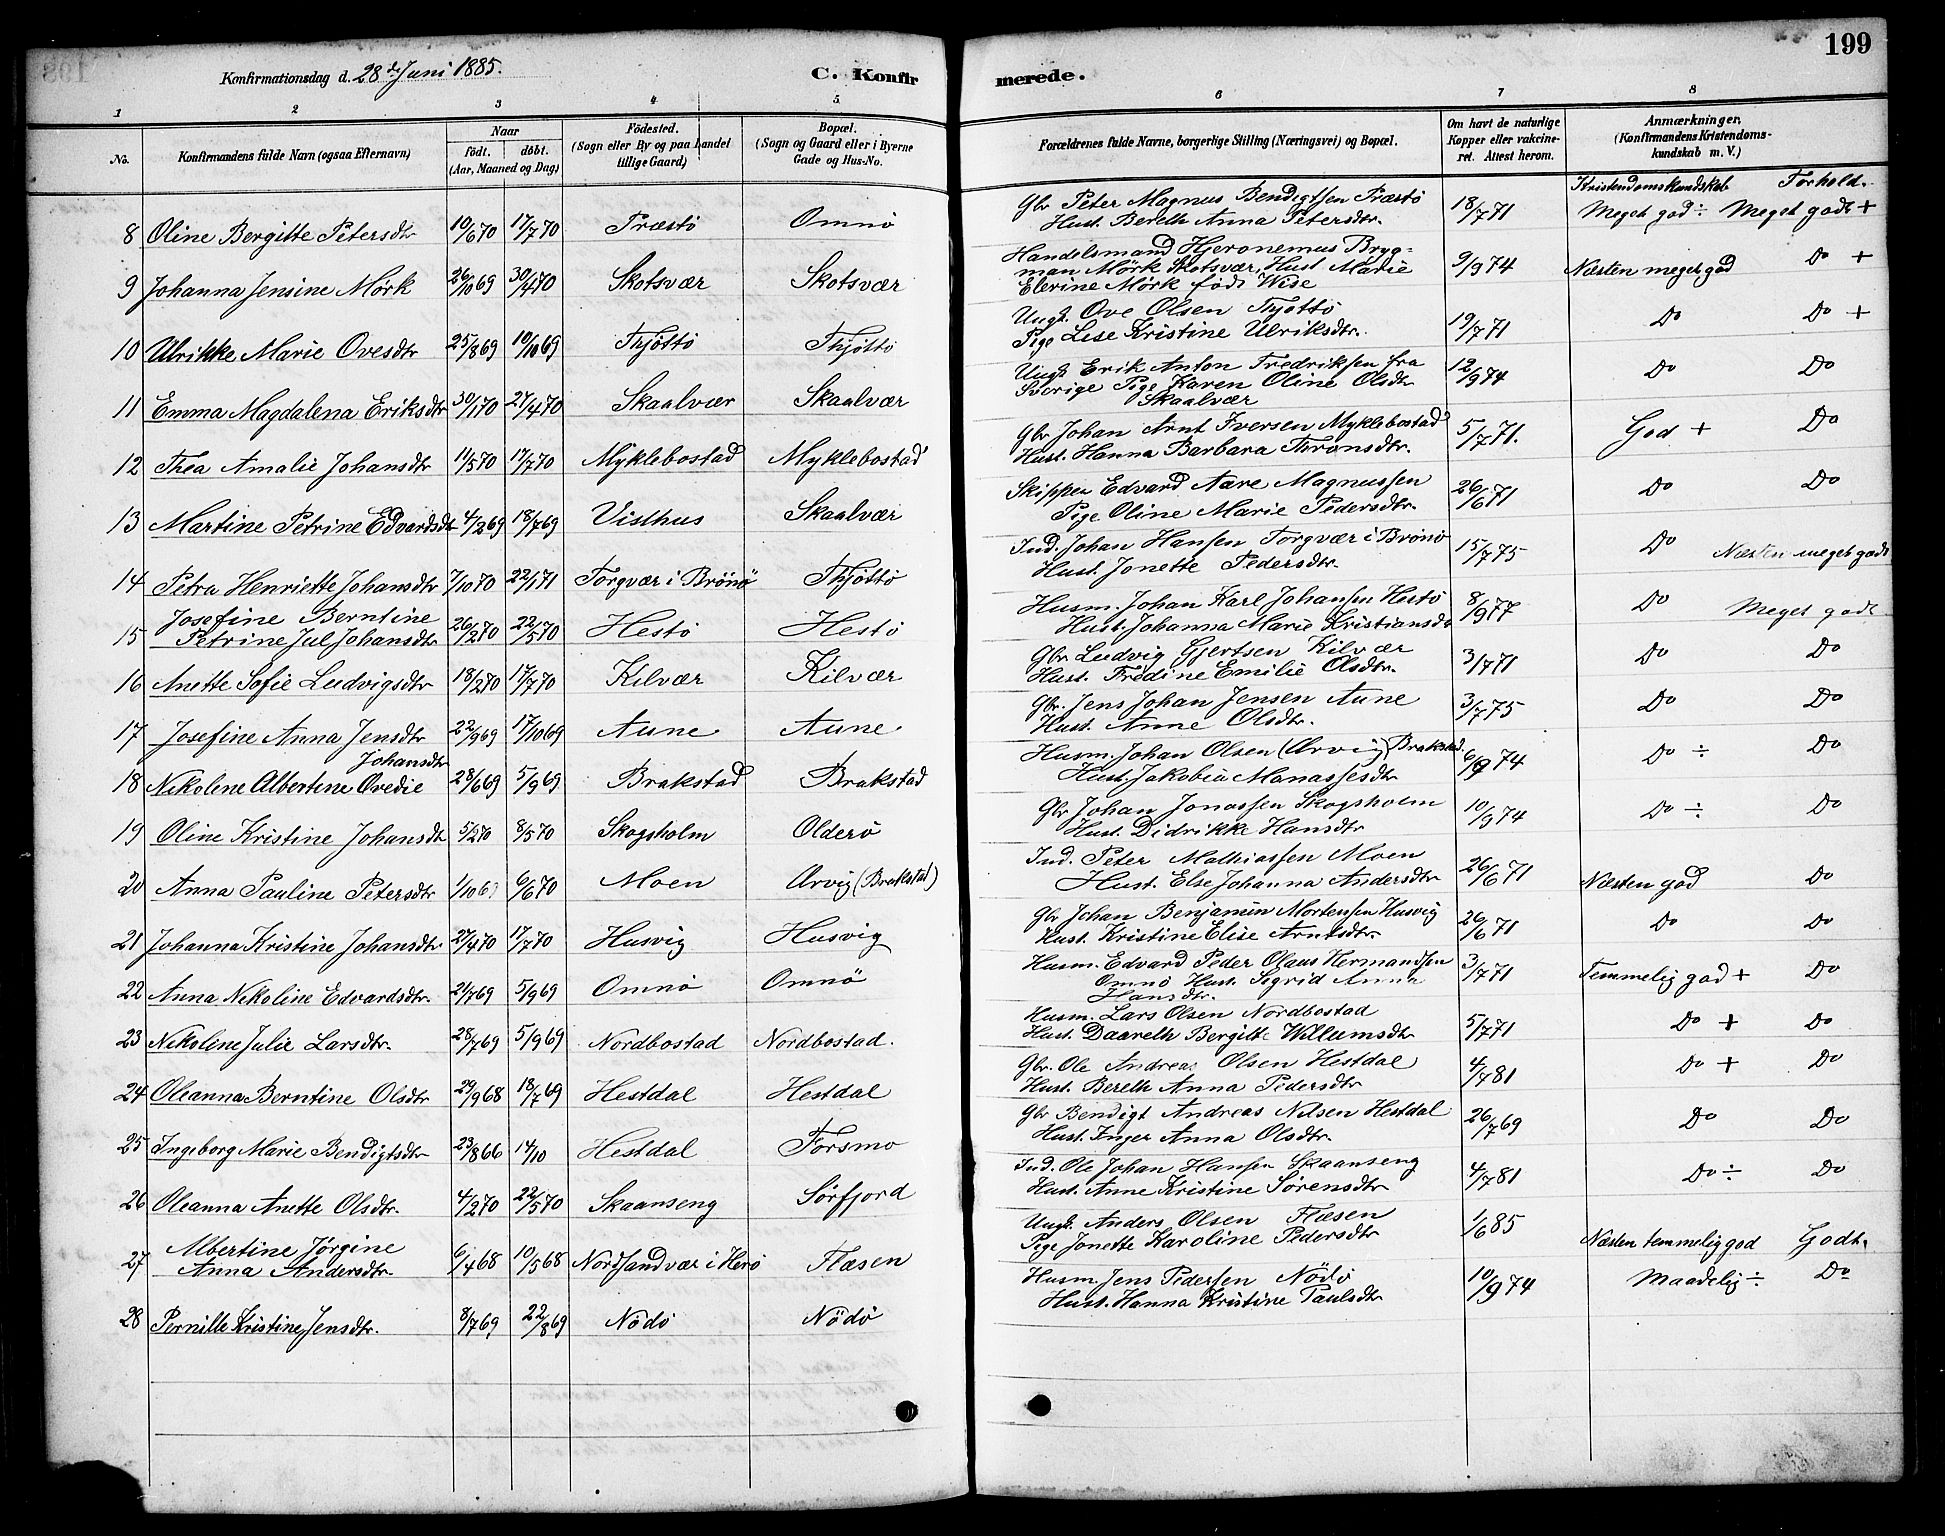 199
Konfirmationsdag d. 28de Juni 1885.
C. Konfirmerede.
1 2 3 4 5 6 7 8
No.
Konfirmandens fulde Navn (ogsaa Efternavn)
Naar
født. døbt.
(Aar, Maaned og Dag)
Fødested.
(Sogn eller By og paa Landet
tillige Gaard)
Bopæl.
(Sogn og Gaard eller i Byerne
Gade og Hus-No.
Forældrenes fulde Navne, borgerlige Stilling (Næringsvei) og Bopæl.
Om havt de naturlige
Kopper eller vakcine-
ret. Attest herom.
Anmærkninger.
(Konfirmandens Kristendoms-
kundskab m. V.)
Kristendomskundskab Forhold.
8 Oline Bergitte Petersdtr 10/6 70 17/7 70 Træstö Omnö
Gbr Peter Magnus Bendigtsen Træstö
Hust. Bereth Anna Petersdtr. 18/7 71 Meget god ÷ Meget godt +
9 Johanna Jensine Mörk 26/10 69 30/4 70 Skotsvær Skotsvær
Handelsmand Hjeronemus Bryg=
man Mörk Skotsvær, Hust Marie
Elerine Mörk föds Wise 9/9 74 Næsten meget god Do +
10 Ulrikke Marie Ovesdtr 25/8 69 10/10 69 Thjöttö Thjöttö
Ungk. Ove Olsen Thjöttö
Pige Lise Kristine Ulriksdtr. 19/7 71 Do Do +
11 Emma Magdalena Eriksdtr 30/1 70 27/4 70 Skaalvær Skaalvær
Ungk Erik Anton Fredriksen fra
Sverige Pige Karen Oline Olsdtr
Skaalvær 12/9 74 Do Do
12 Thea Amalie Johansdtr 11/5 70 17/7 70 Myklebostad Myklebostad
Gbr Johan Arnt Iversen Myklebostad
Hust. Hanna Barbara Thronsdtr. 5/7 71. God + Do
13 Martine Petrine Edvardsdt 4/2 69 18/7 69 Visthus Skaalvær
Skipper Edvard Aare Magnussen
Pige Oline Marie Pedersdtr. 26/6 71 Do Do
14 Petra Henriette Johansdtr 7/10 70 22/1 71 Torgvær i Brönö Thjöttö
Ind. Johan Hansen Torgvær i Brönö
Hust. Jonette Pedersdtr. 15/7 75 Do Næsten meget godt
15 Josefine Berntine
Petrine Jul Johansdtr 26/2 70 22/5 70 Hestö Hestö
Husm. Johan Karl Johansen Hestö
Hust. Johanna Marie Kristiansdtr 8/9 77 Do Meget godt
16 Anette Sofie Ludvigsdtr 18/2 70 17/7 70 Kilvær Kilvær
Gbr. Ludvig Gjertsen Kilvær
Hust. Fredine Emilie Olsdtr. 3/7 71 Do Do
17 Josefine Anna Jensdtr 22/9 69 17/10 69 Aune Aune
Gbr. Jens Johan Jensen Aune
Hust. Anne Olsdtr. 3/7 75 Do Do
18 Nikoline Albertine Ovedie Johansdtr 28/6 69 5/9 69 Brakstad Brakstad
Husm. Johan Olsen (Arvig) Brakstad.
Hust. Jakobia Manassesdtr 6/9 74 Do ÷ Do
19 Oline Kristine Johansdt 5/2 70 8/5 70 Skogsholm Olderö
Gbr Johan Jonassen Skogsholm
Hust. Didrikke Hansdtr 10/9 74 Do ÷ Do
20 Anna Pauline Petersdtr 1/10 69 6/6 70 Moen Arvig (Brakstad)
Ind. Peter Mathiassen Moen
Hust. Else Johanna Andersdtr 26/6 71 Næsten god Do
21 Johanna Kristine Johansdtr 27/4 70 17/7 70 Husvig Husvig
Gbr Johan Benjamin Mortensen Husvig
Hust. Kristine Elise Arntsdtr. 26/6 71 Do Do
22 Anna Nikoline Edvardsdtr. 21/7 69 5/9 69 Omnö Omnö
Husm. Edvard Peder Olaus Hermandsen
Omnö Hust. Sigrid Anna
Hansdtr. 3/7 71 Temmelig god + Do
23 Nikoline Julie Larsdtr. 28/7 69 5/9 69 Nordbostad Nordbostad.
Husm. Lars Olsen Nordbostad
Hust. Daareth Bergitte Willumsdtr 5/7 71 Do + Do
24 Oleanna Berntine Olsdtr 29/9 68 18/7 69 Hestdal Hestdal
Gbr. Ole Andreas Olsen Hestdal
Hust. Bereth Anna Pedersdtr 4/7 81 Do + Do
25 Ingeborg Marie Bendigtsdtr 23/8 66 14/10 Hestdal Forsmo
Gbr Bendigt Andreas Nilsen Hestdal
Hust. Inger Anna Olsdtr. 26/7 69 Do Do
26 Oleanna Anette Olsdtr. 4/2 70 22/5 70 Skaanseng Sörfjord
Ind. Ole Johan Hansen Skaanseng
Hust. Anne Kristine Sörensdtr 4/7 81 Do ÷ Do
27 Albertine Jørgine
Anna Andersdtr. 6/4 68 10/5 68 Nordsandvær i Herö Flæsen
Ungk. Anders Olsen Flæsen
Pige Jonette Karoline Pedersdtr 1/6 85 Næsten temmelig god Godt.
28 Pernille Kristine Jensdtr. 8/7 69 22/8 69 Nödö Nödö
Husm. Jens Pedersen Nödö
Hust. Hanna Kristine Paulsdtr 10/9 74 Maadelig ÷ Do